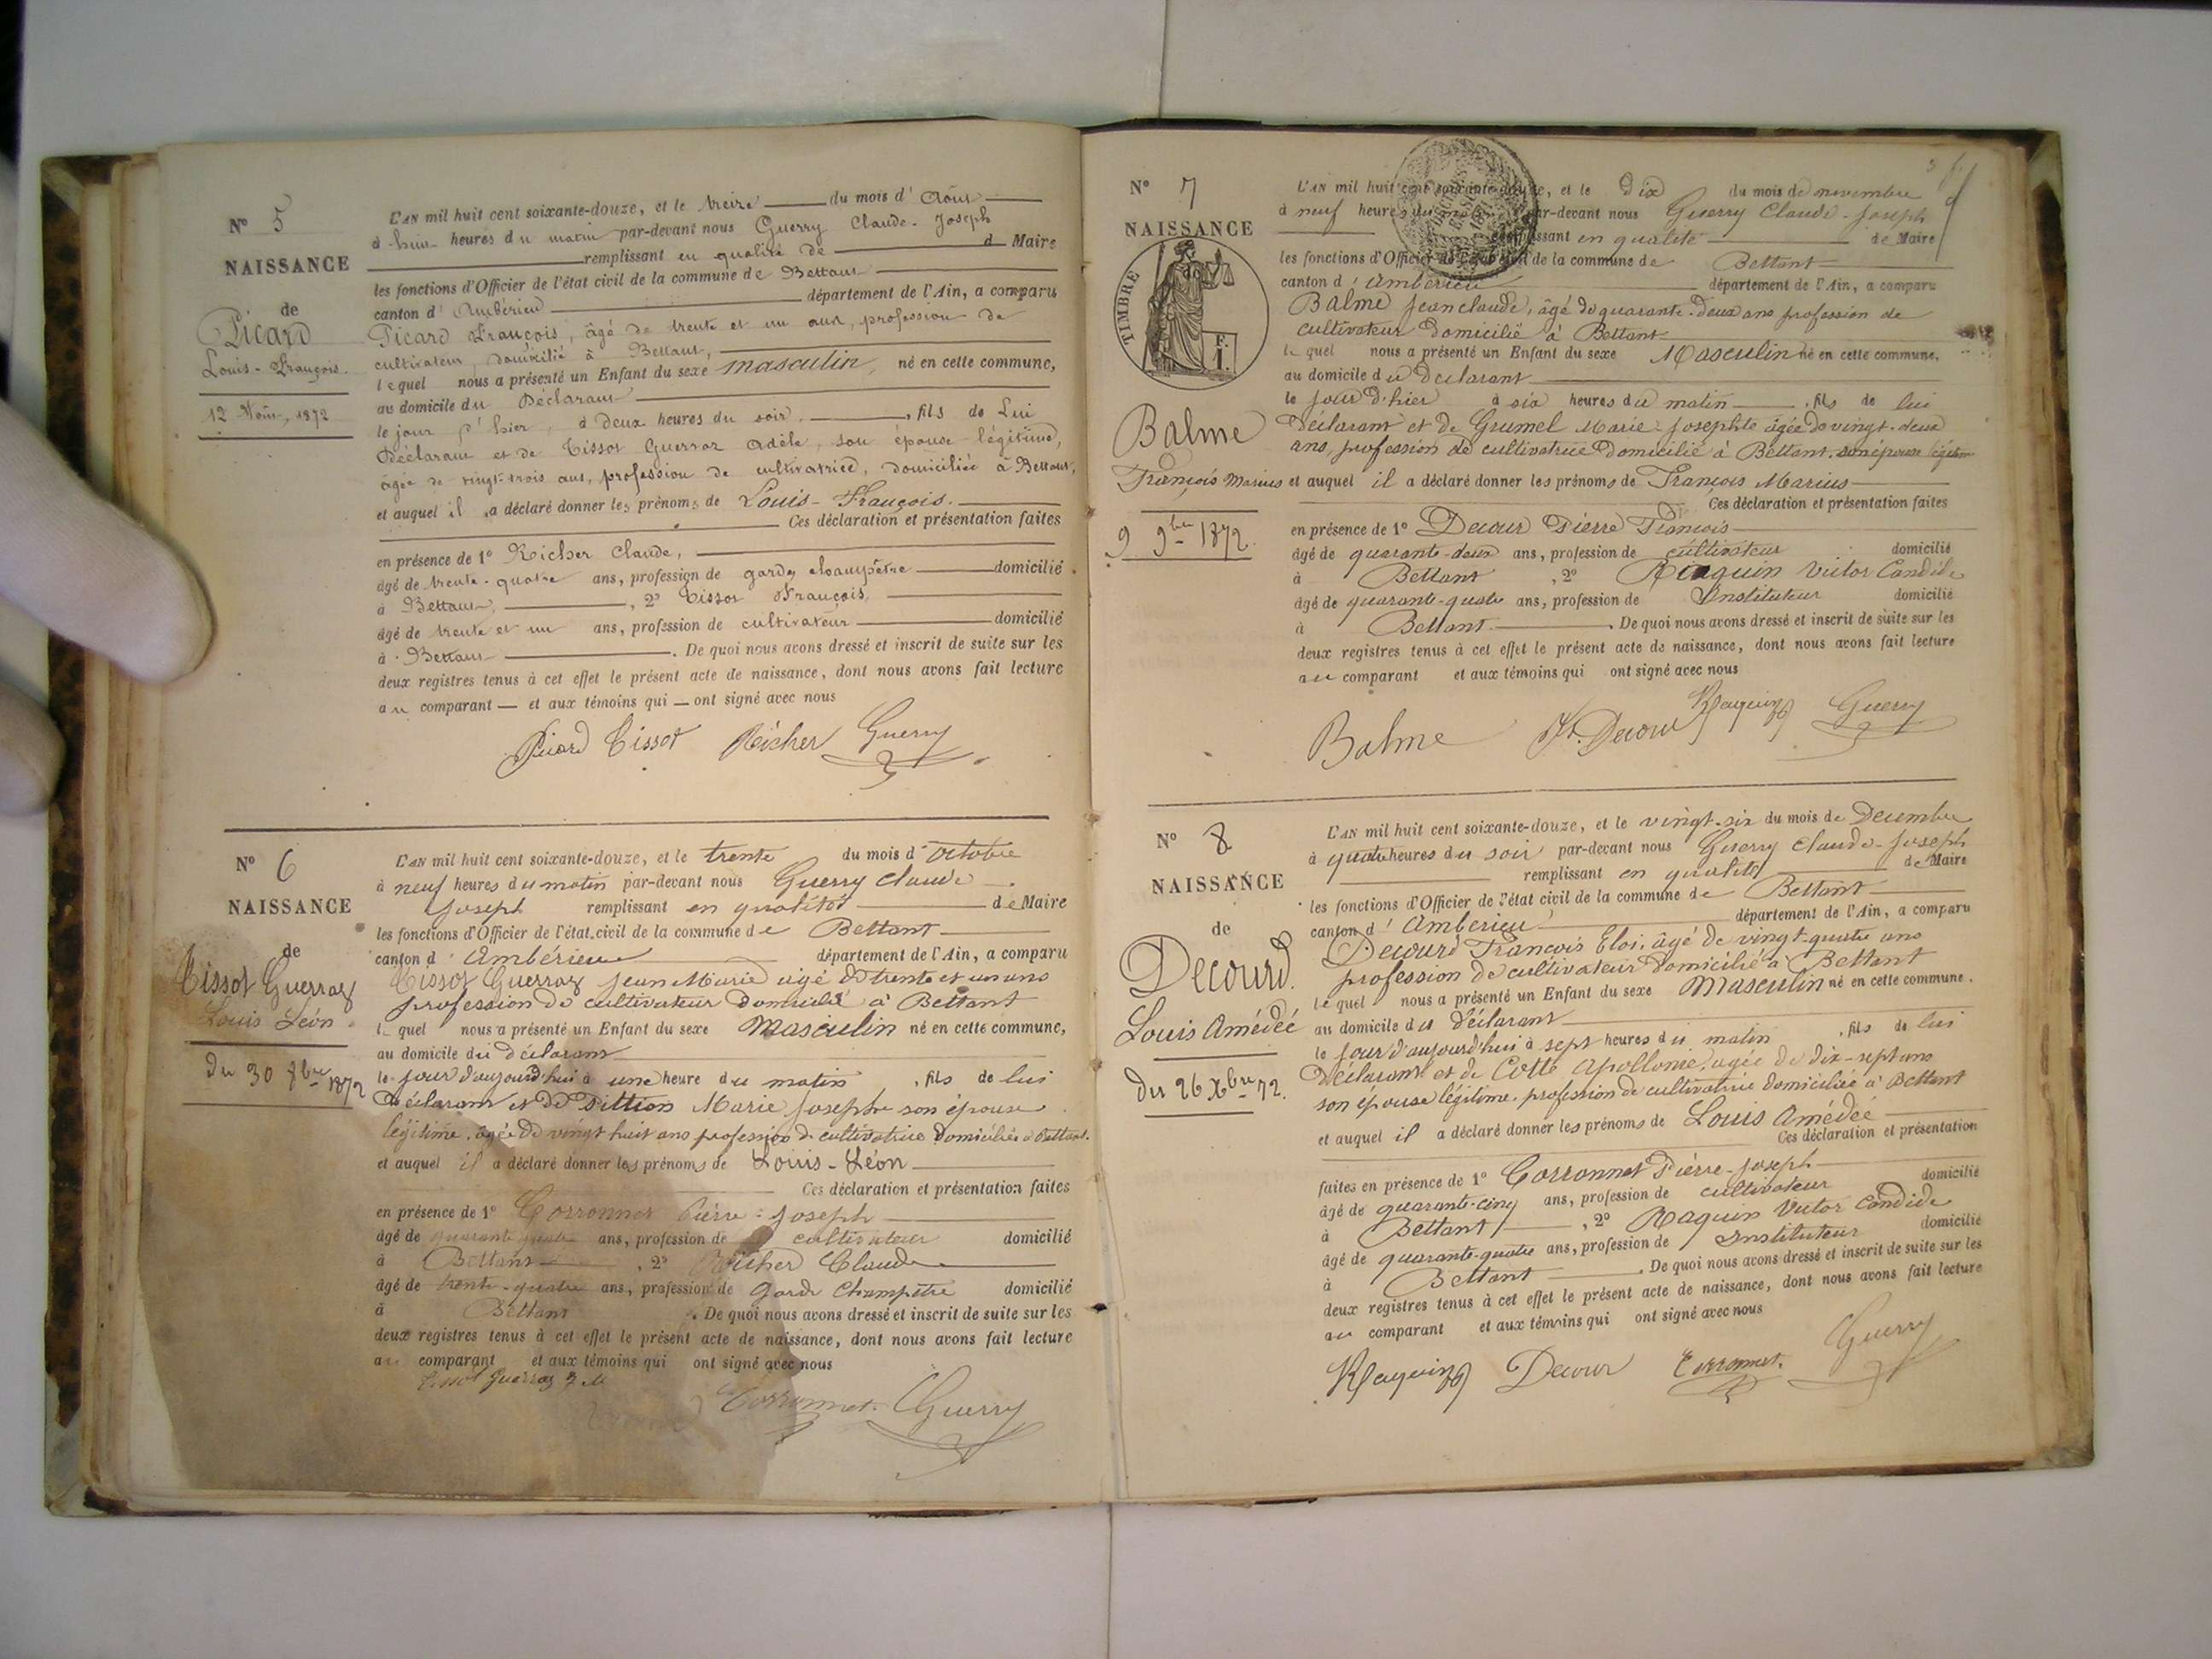 N° 5
NAISSANCE
de
Picard
Louis-François.
12 Août, 1872
L'AN mil huit cent soixante-douze, et le treize du mois d'Août
à huit heures du matin par-devant nous Guerry Claude-Joseph
remplissant en qualité de d Maire
les fonctions d'Officier de l'état civil de la commune de Bettant
canton d'Ambérieu département de l'Ain, a comparu
Picard François, âgé de trente et un ans, profession de
cultivateur, domicilié à Bettant,
lequel nous a présenté un Enfant du sexe masculin, né en cette commune,
au domicile du Déclarant
le jour d'hier, à deux heures du soir, fils de Lui
Déclarant et de Tissot Guerraz Adèle, son épouse légitime,
âgée de vingt-trois ans, profession de cultivatrice, domiciliée à Bettant,
et auquel il a déclaré donner les prénoms de Louis-François.
Ces déclaration et présentation faites
en présence de 1° Richer Claude,
âgé de trente-quatre ans, profession de garde champêtre domicilié
à Bettant, 2° Tissot François,
âgé de trente et un ans, profession de cultivateur domicilié
à Bettant. De quoi nous avons dressé et inscrit de suite sur les
deux registres tenus à cet effet le présent acte de naissance, dont nous avons fait lecture
au comparant et aux témoins qui ont signé avec nous
Picard Tissot Richer Guerry
N° 6
NAISSANCE
de
Tissot Guerraz
Louis Léon
Du 30 8bre 1872
L'AN mil huit cent soixante-douze, et le trente du mois d'Octobre
à neuf heures du matin par-devant nous Guerry Claude
Joseph remplissant en qualité de Maire
les fonctions d'Officier de l'état civil de la commune de Bettant
canton d'Ambérieu département de l'Ain, a comparu
Tissot Guerraz Jean Marie âgé de trente et un ans
profession de cultivateur domicilié à Bettant
lequel nous a présenté un Enfant du sexe Masculin né en cette commune,
au domicile du déclarant
le jour d'aujourd'hui à une heure du matin, fils de lui
Déclarant et de Dittion Marie Josephte son épouse
légitime, âgée de vingt huit ans profession de cultivatrice domiciliée à Bettant.
et auquel il a déclaré donner les prénoms de Louis-Léon
Ces déclaration et présentation faites
en présence de 1° Corronnet Pierre-Joseph
âgé de quarante quatre ans, profession de cultivateur domicilié
à Bettant, 2° Richer Claude
âgé de trente-quatre ans, profession de Garde Champêtre domicilié
à Bettant. De quoi nous avons dressé et inscrit de suite sur les
deux registres tenus à cet effet le présent acte de naissance, dont nous avons fait lecture
au comparant et aux témoins qui ont signé avec nous
Tissot Guerraz J M
Corronnet. Guerry
N° 7
NAISSANCE
TIMBRE
F.
1.
Balme
François Marius
9 9bre 1872
L'AN mil huit cent soixante-douze, et le dix du mois de novembre
à neuf heures du matin par-devant nous Guerry Claude-Joseph
remplissant en qualité de Maire
les fonctions d'Officier de l'état civil de la commune de Bettant
canton d'Ambérieu département de l'Ain, a comparu
Balme Jean claude, âgé de quarante-deux ans profession de
cultivateur domicilié à Bettant
lequel nous a présenté un Enfant du sexe Masculin né en cette commune,
au domicile du déclarant
le jour d'hier à six heures du matin, fils de lui
Déclarant et de Grumel Marie-Josephte âgée de vingt-deux
ans, profession de cultivatrice domicilié à Bettant, son épouse légitime
et auquel il a déclaré donner les prénoms de François Marius
Ces déclaration et présentation faites
en présence de 1° Decour Pierre François
âgé de quarante-deux ans, profession de cultivateur domicilié
à Bettant, 2° Raquin Victor Candide
âgé de quarante-quatre ans, profession de Instituteur domicilié
à Bettant. De quoi nous avons dressé et inscrit de suite sur les
deux registres tenus à cet effet le présent acte de naissance, dont nous avons fait lecture
au comparant et aux témoins qui ont signé avec nous
Balme Decour Raquin Guerry
N° 8
NAISSANCE
de
Decourd.
Louis Amédéé
Du 26 Xbre 72.
L'AN mil huit cent soixante-douze, et le vingt-six du mois de Décembre
à quatre heures du soir par-devant nous Guerry Claude-Joseph
remplissant en qualité de Maire
les fonctions d'Officier de l'état civil de la commune de Bettant
canton d'Ambérieu département de l'Ain, a comparu
Decourd François Eloi, âgé de vingt-quatre ans
profession de cultivateur domicilié à Bettant
lequel nous a présenté un Enfant du sexe Masculin né en cette commune.
au domicile du déclarant
le jour d'aujourd'hui à sept heures du matin, fils de lui
Déclarant et de Cotte Apollonie, agée de dix-sept ans
son épouse légitime, profession de cultivatrice domiciliée à Bettant
et auquel il a déclaré donner les prénoms de Louis Amédéé
Ces déclaration et présentation
faites en présence de 1° Corronnet Pierre-Joseph
âgé de quarante-cinq ans, profession de cultivateur domicilié
à Bettant, 2° Raquin Victor Candide
âgé de quarante-quatre ans, profession de Instituteur domicilié
à Bettant. De quoi nous avons dressé et inscrit de suite sur les
deux registres tenus à cet effet le présent acte de naissance, dont nous avons fait lecture
au comparant et aux témoins qui ont signé avec nous
Raquin Decour Corronnet. Guerry